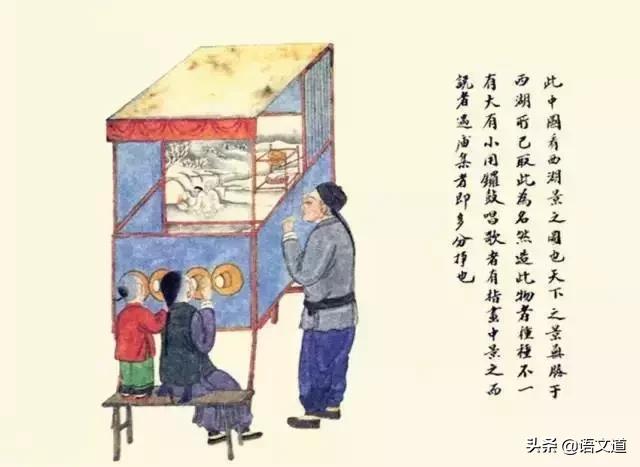 此中國看西湖景之圖也天下之景無勝于
西湖所已取此為名然造此物者種種不一
有大有小用鑼鼓唱歌者有指畫中景之而
説者遇廟集者即多分掙也
头条 @语文道